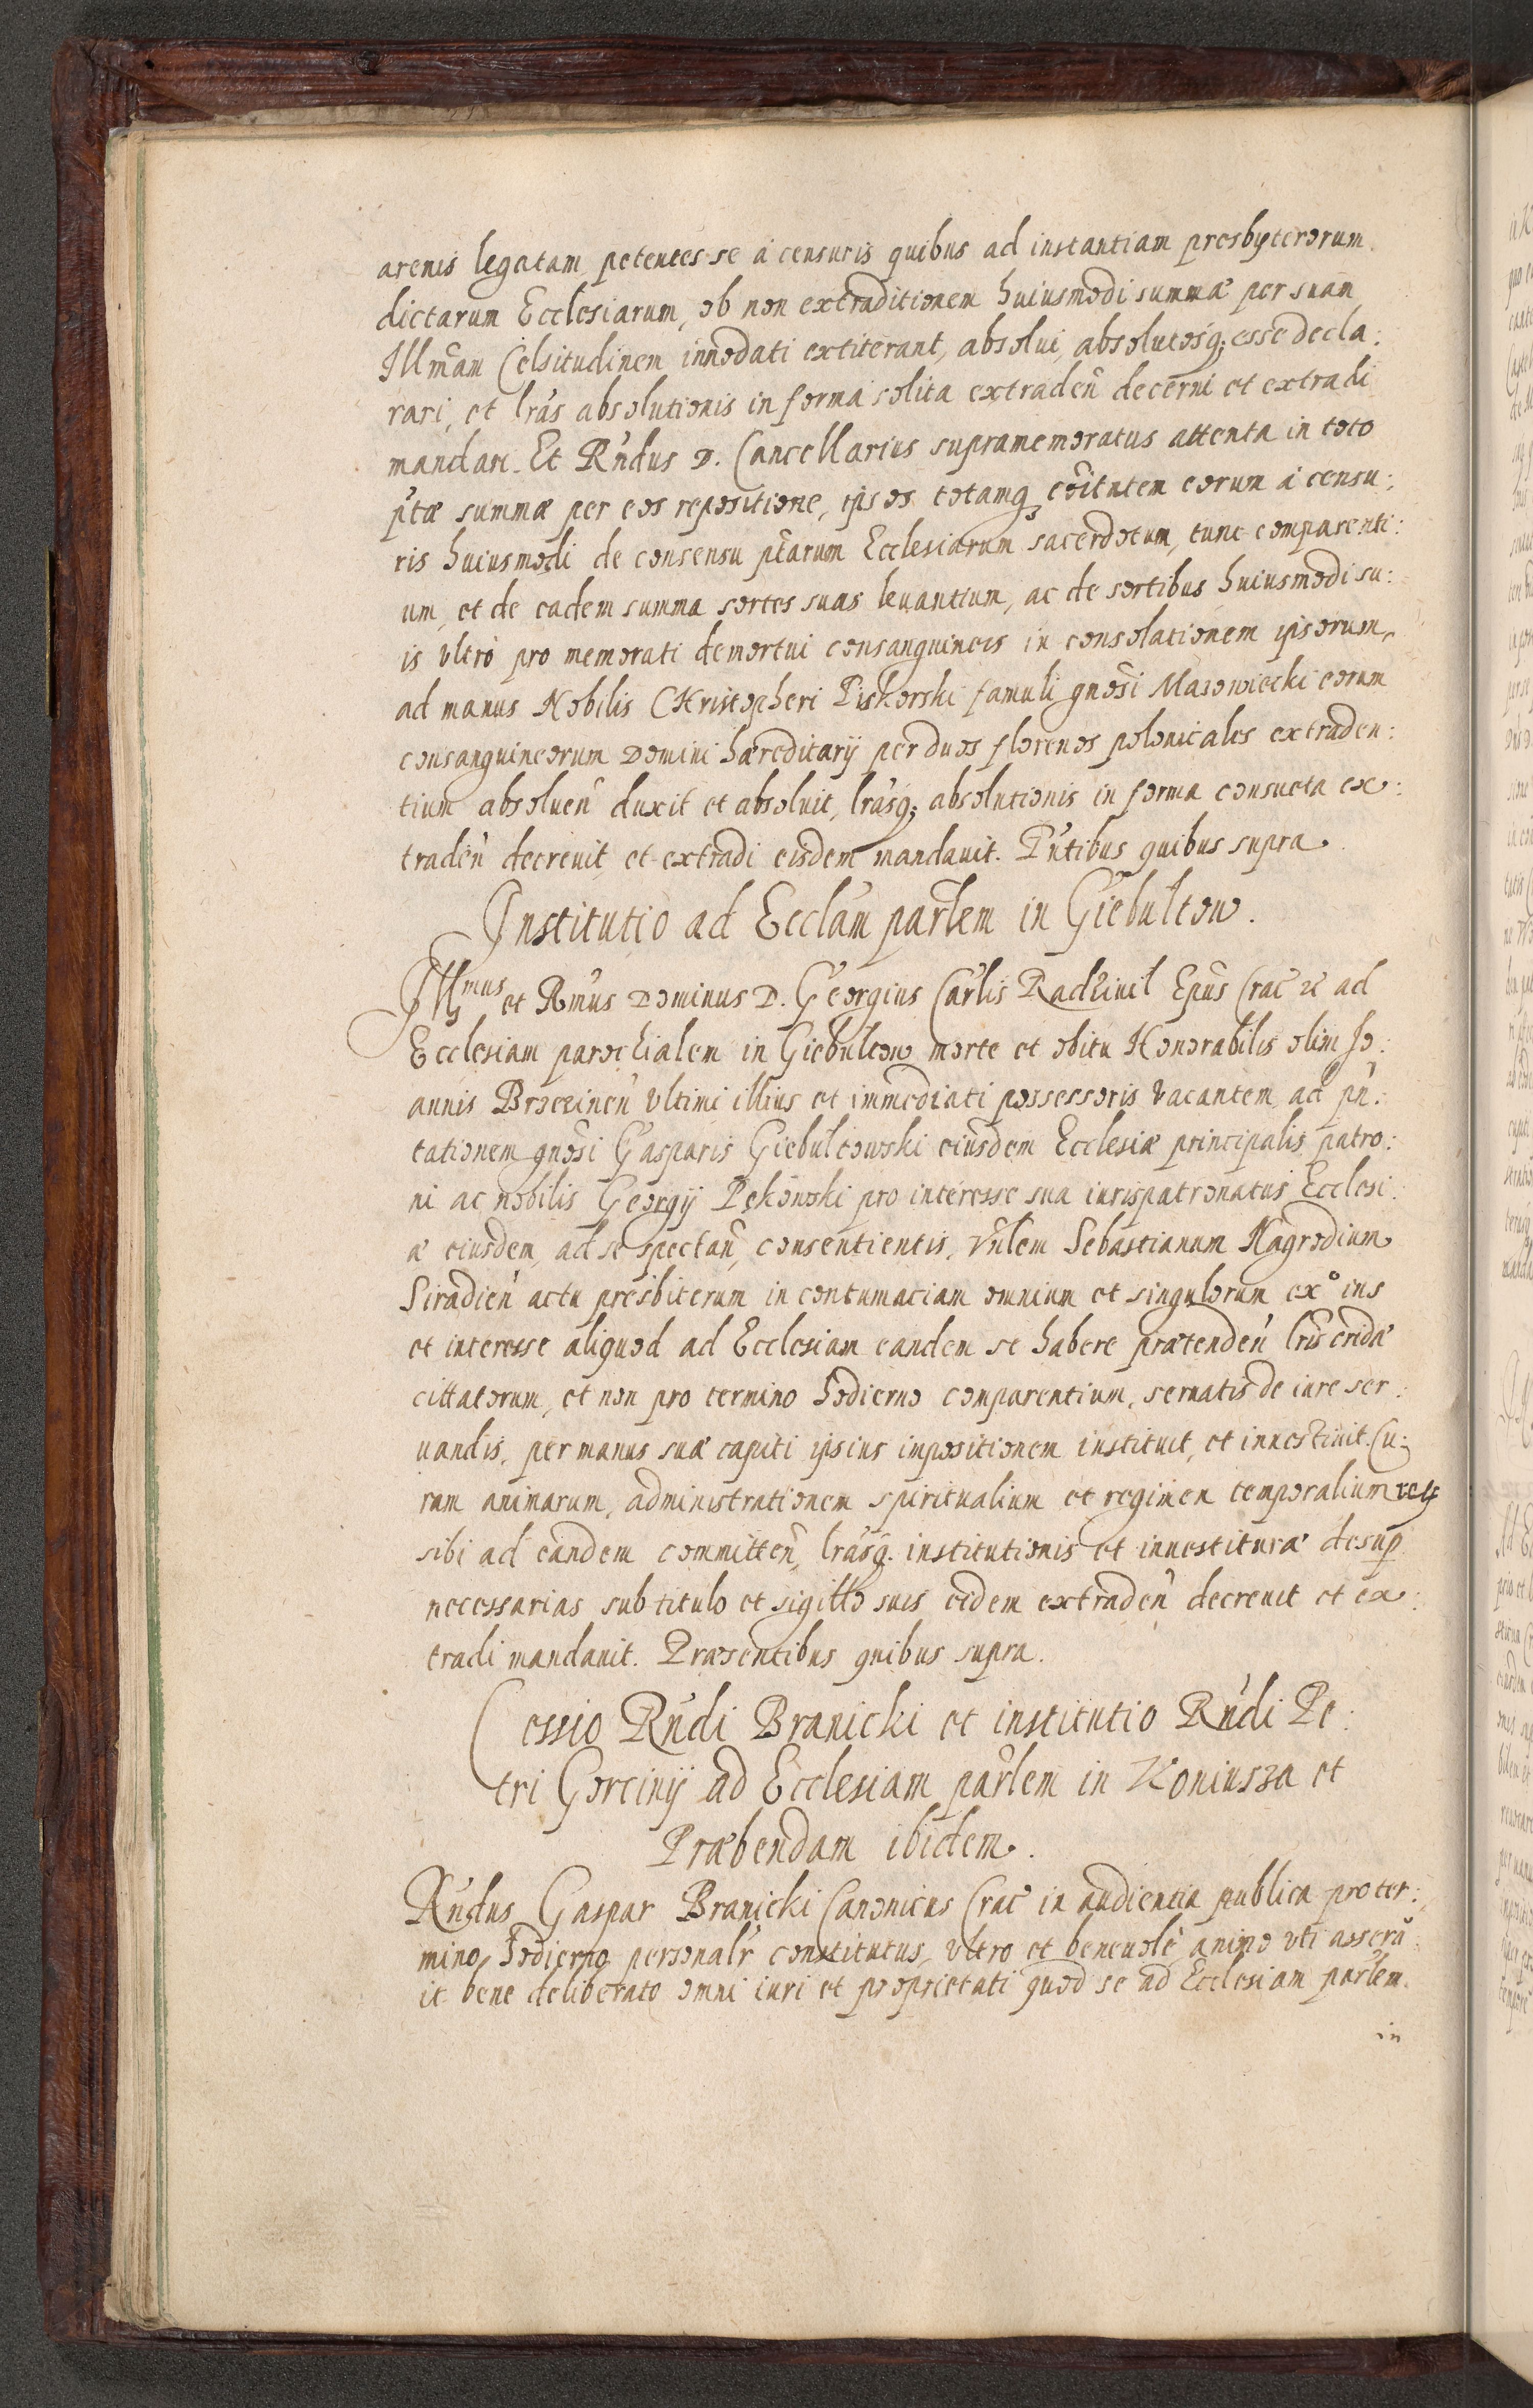 arenis legatam petentes se à censuris quibus ad instantiam presbyterorum
dictarum Ecclesiarum, ob non extraditionem huiusmodi summæ per suam
Illmam Celsitudinem innodati extiterant, absolui, absolutosq; esse decla:
rari, et lras absolutionis in forma solita extraden̄ decerni et extradi
mandari. Et Rndus D. Cancellarius supramemoratus attenta in toto
ptæ summæ per eos repositione, ipsos totamq; cōitatem eorum à censu:
ris huiusmodi de consensu ptarum Ecclesiarum sacerdotum, tunc comparenti:
um, et de eadem summa sortes suas leuantium, ac de sortibus huiusmodi su:
is vltrò pro memorati demortui consanguineis in consolationem ipsorum,
ad manus Nobilis CHristopheri Piskorski famuli gnosi Mazowiecki eorum
consanguineorum Domini hæreditarij per duos florenos polonicales extraden:
tium absoluen̄ duxit et absoluit, lrasq; absolutionis in forma consueta ex:
traden̄ decreuit et extradi eisdem mandauit. Pntibus quibus supra.
Institutio ad Ecclam parlem in Giebultow.
Illmus et Rmus Dominus D. Georgius Carlis Radziuil Epus Crac̄ &c ad
Ecclesiam parochialem in Giebultow morte et obitu Honorabilis olim Jo:
annis Broczinen̄ vltimi illius et immediati possessoris vacantem, ad pn̄:
tationem gnosi Gasparis Giebultowski eiusdem Ecclesiæ principalis patro:
ni ac nobilis Georgij Pękowski pro interesse sua iurispatronatus Ecclesi:
æ eiusdem, ad se spectan̄, consentientis, Vnlem Sebastianum Nagrodium
Siradien̄ actu presbiterum in contumaciam omnium et singulorum exº ius
et interesse aliquod ad Ecclesiam eandem se habere prætenden̄ lris cridæ
cittatorum, et non pro termino hodierno comparentium, seruatis de iure ser:
uandis, per manus suæ capiti ipsius impositionem instituit, et inuestiuit. Cu:
ram animarum, administrationem spiritualium et regimen temporalium
sibi ad eandem committen̄, lrasq. institutionis et inuestituræ desup
necessarias sub titulo et sigillo suis eidem extraden̄ decreuit et ex:
tradi mandauit. Præsentibus quibus supra.
Cessio Rndi Branicki et institutio Rndi Pe:
tri Gorcinij ad Ecclesiam parlem in Koniusza et
Præbendam ibidem.
Rndus Gaspar Branicki Canonicus Crac̄ in audientia publica pro ter:
mino hodierno personalr constitutus, vltro et beneuolè animo vti asseru
it bene deliberato omni iuri et proprietati quod se ad Ecclesiam parlem
in